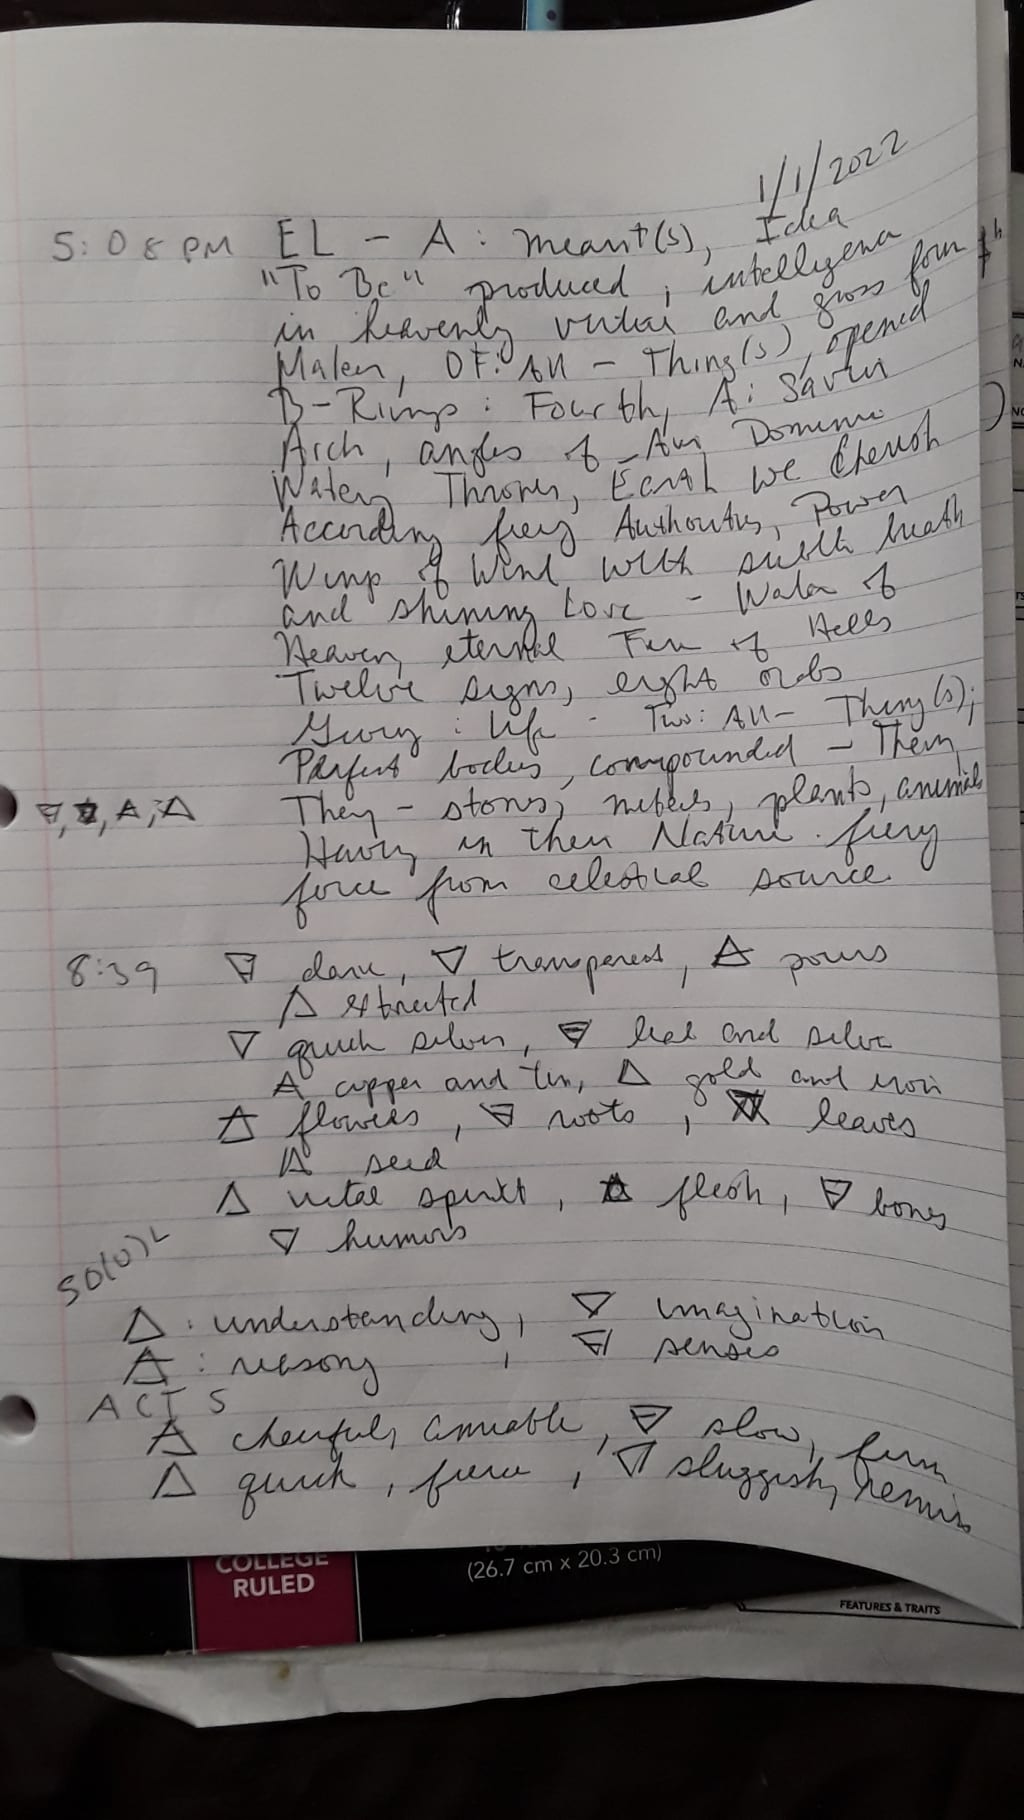 1/1/2022
5:08 PM EL - A: meant(s), Idea
"To Be" produced, intelligence
in heavenly virtue and gross form
Maker, OF: All - Thing(s), opened
B-Rings: Fourth, A: Savior
Arch, angles of Air, Dominion
Watery Thrones, Earth we Cherish
According fiery Authorities, Power
Wings of Wind with subtle breath
and shining Love - Water of
Heaven, eternal Fire of Hells
Twelve signs, eight orbs
Giving: life - Two: All- Thing(s);
Perfect bodies, compounded - Them,
🜃, 🜄, 🜁, 🜂 They - stones, metals, plants, animals
Having in their Nature fiery
force from celestial source.
8:39 🜃 dark, 🜄 transparent, 🜁 pours
🜂 extracted
🜄 quick silver, 🜃 lead and silver
🜁 copper and tin, 🜂 gold and iron
🜁 flowers, 🜃 roots, leaves
seed
🜂 vital spirit, 🜁 flesh, 🜃 bones
🜄 humors
SO(U)L
🜂: understanding, 🜄 imagination
🜁: reasong, 🜃 senses
ACTS
🜁 cheerful, amiable, 🜃 slow, firm
🜂 quick, fierce, 🜄 sluggish, remiss
COLLEGE
RULED
(26.7 cm x 20.3 cm)
FEATURES & TRAITS